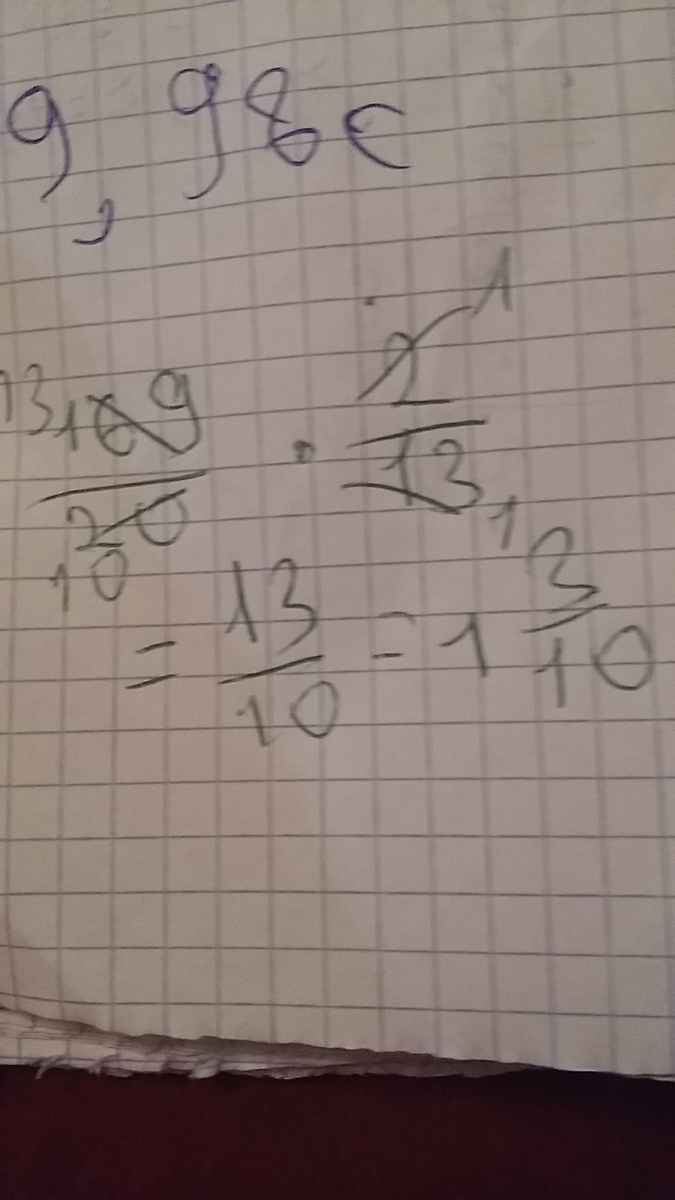 9,98€
13 169/20 10 · 2/13 1 1
= 13/10 = 1 3/10